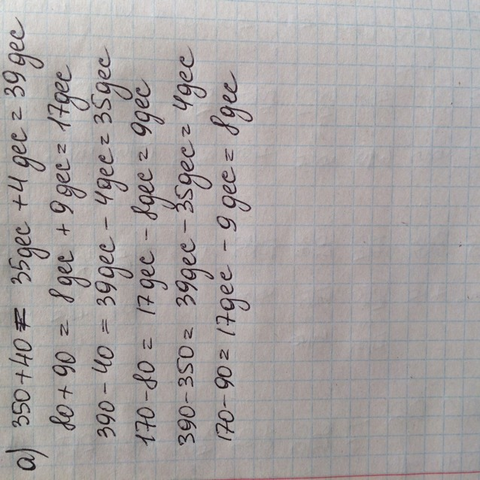 а) 350+40= 35дес +4 дес = 39дес
80+90 = 8дес + 9дес = 17дес
390-40 = 39дес - 4дес = 35дес
170-80 = 17дес - 8дес = 9дес
390-350 = 39дес - 35дес = 4дес
170-90 = 17дес - 9 дес = 8дес